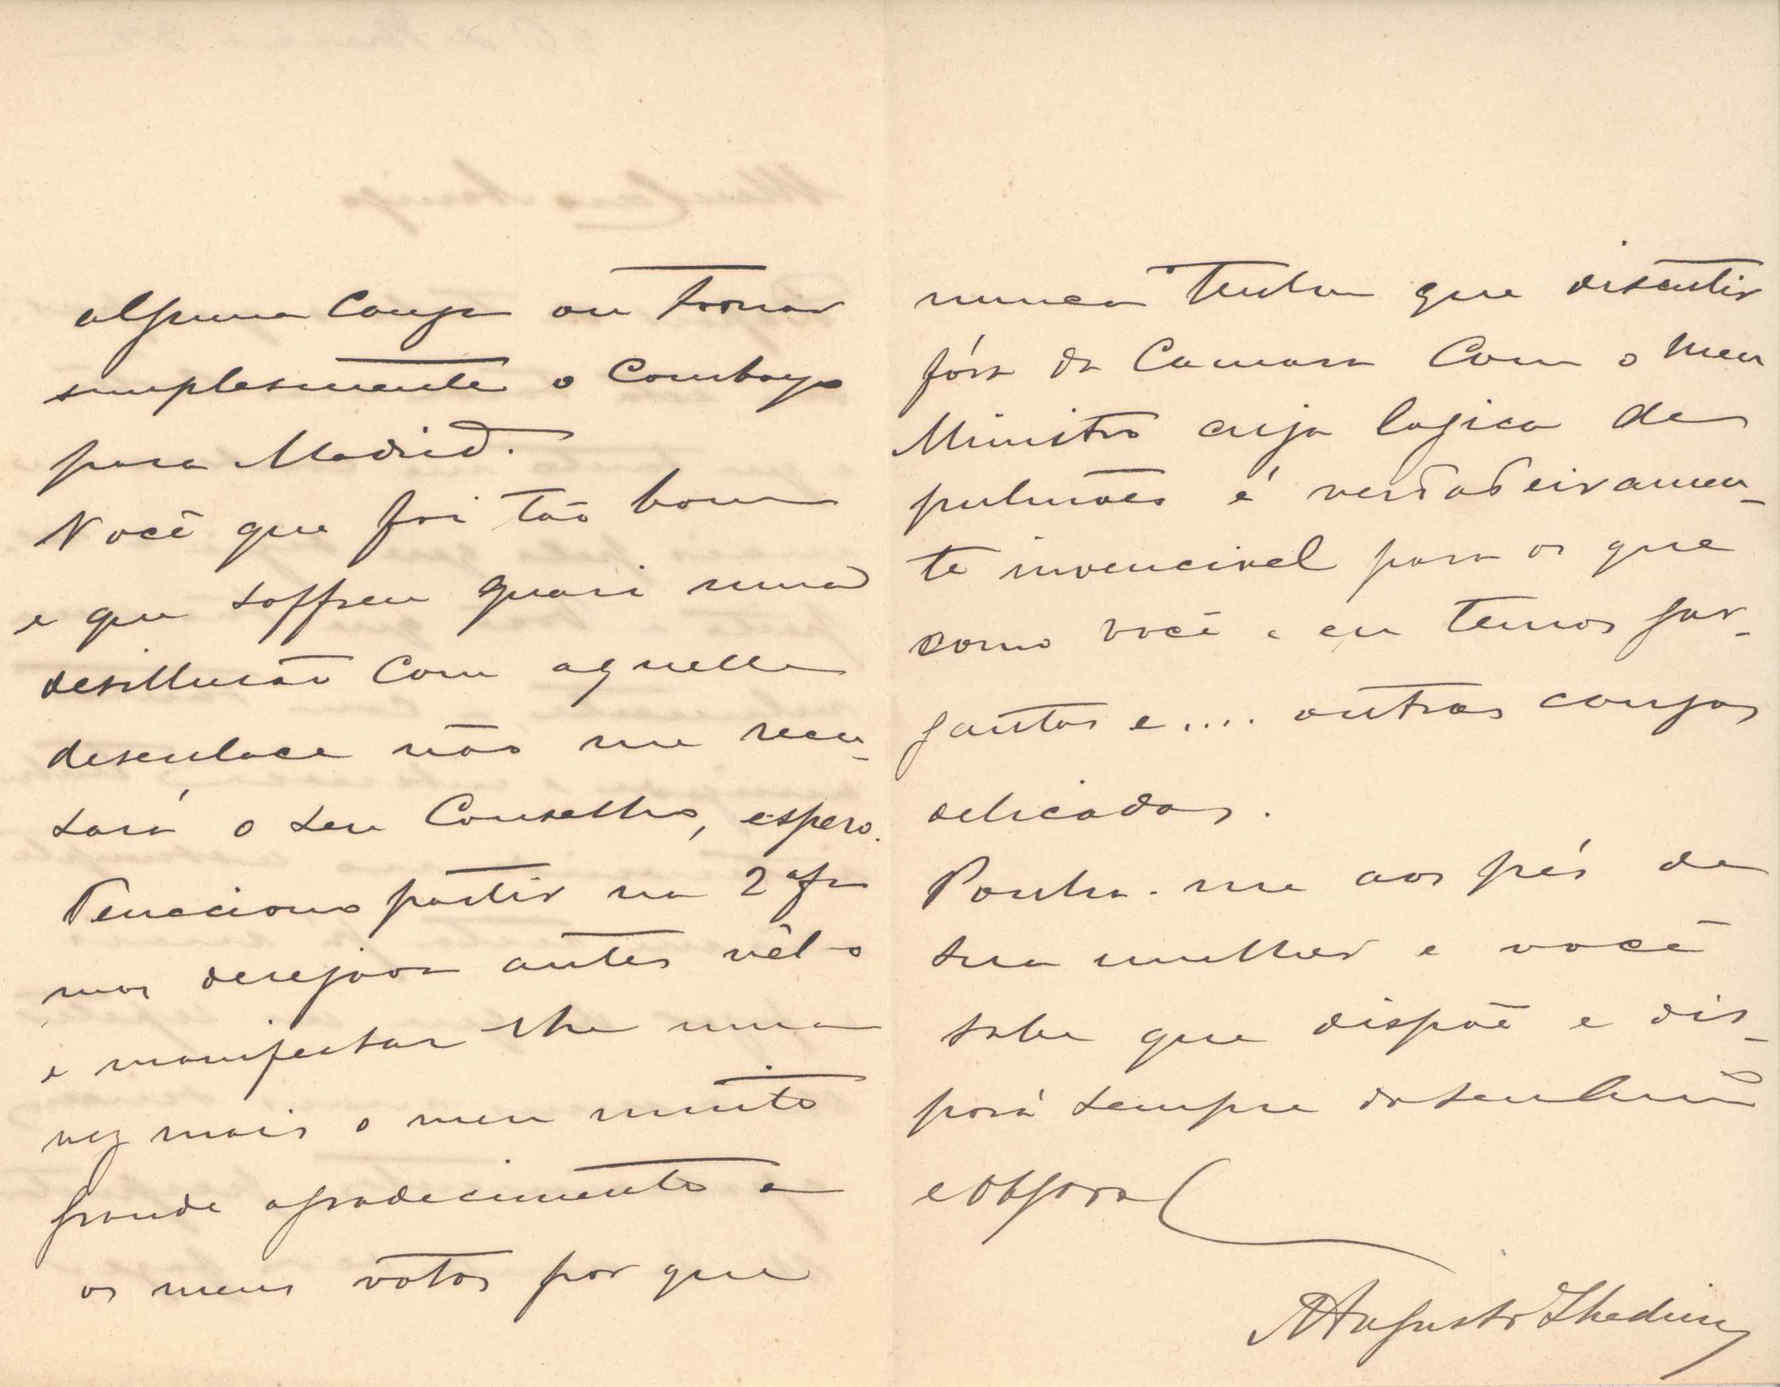 alguma couza ou tomar
simplesmente o comboyo
para Madrid.
Você que foi tão bom
e que soffreu quasi uma
desillusão com aquelle
desenlace não me recu-
sará o seu conselho, espero.
Tenciono partir na 2ª fra
mas desejava antes vêl-o
e manifestar-lhe uma
vez mais o meu muito
grande agradecimento e
os meus votos por que
nunca tenha que discutir
fóra da Camara com o meu
Ministro cuja logica de
pulmões é verdadeiramen-
te invencivel para os que
como você e eu temos gar-
gantas e.... outras couzas
delicadas.
Ponha-me aos pés de
sua mulher e você
sabe que dispõe e dis-
porá sempre do seu
Augusto